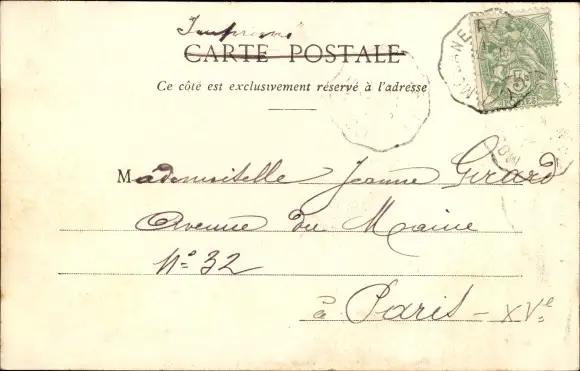 Imprimé
CARTE POSTALE
Ce côté est exclusivement réservé à l'adresse
Mademoiselle Jeanne Girard
Avenue du Maine
N° 32
à Paris - XVe
5
POSTES